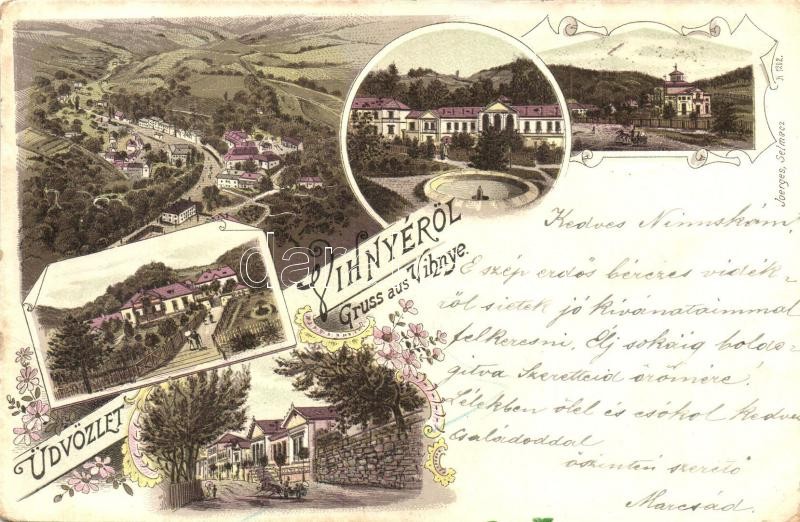 ÜDVÖZLET VIHNYÉRŐL
Gruss aus Vihnye.
Joerges, Selmecz
Kedves
E szép erdős bérczes vidék-
ről sietek jó kivánataimmal
felkeresni. Élj sokáig boldo-
gitva Szeretteid örömére!
Lélekben ölel és csókol kedves
családoddal
őszintén szerető
Marcsád.
darabanth